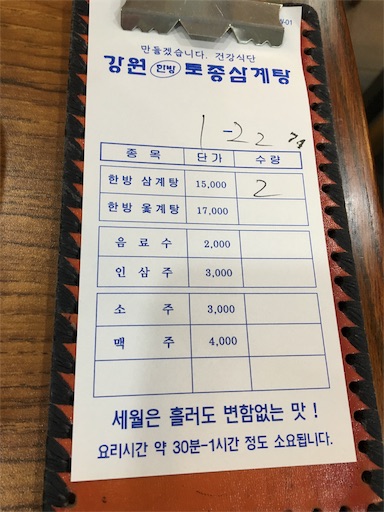 -01
만들겠습니다. 건강식단
강원 한방 토종삼계탕
1-22
종목 단가 수량
한방 삼계탕 15,000 2
한방 옻계탕 17,000
음료수 2,000
인삼주 3,000
소주 3,000
맥주 4,000
세월은 흘러도 변함없는 맛 !
요리시간 약 30분-1시간 정도 소요됩니다.